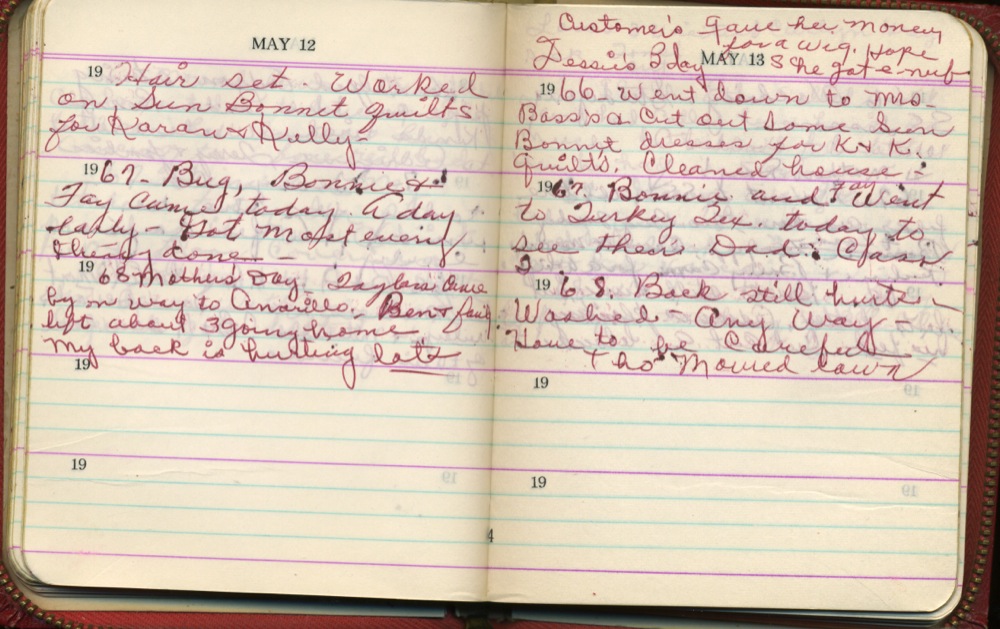 MAY 12
19 Hair set. Worked
on Sun Bonnet quilts
for Karan & Kelly-
1967- Bug, Bonnie &
Fay came today. A day
early - Got most every
thing done -
1968 Mothers Day. Taylors came
by on way to Amarillo. Ben & family
left about 3 going home
My back is hurting lots
19
19
Customers Gave her money
for a wig. hope
Dessie's Bday MAY 13 She got e-nuf
1966 Went down to Mo-
Bass's & Cut out some Sun
Bonnet dresses for K & K.
quilts. Cleaned house -
1967. Bonnie and Fay Went
to Turkey Tex. today to
see their Dad.
1968. Back still hurts -
Washed - Any Way -
Have to be Careful
tho Mowed lawn
19
19
4